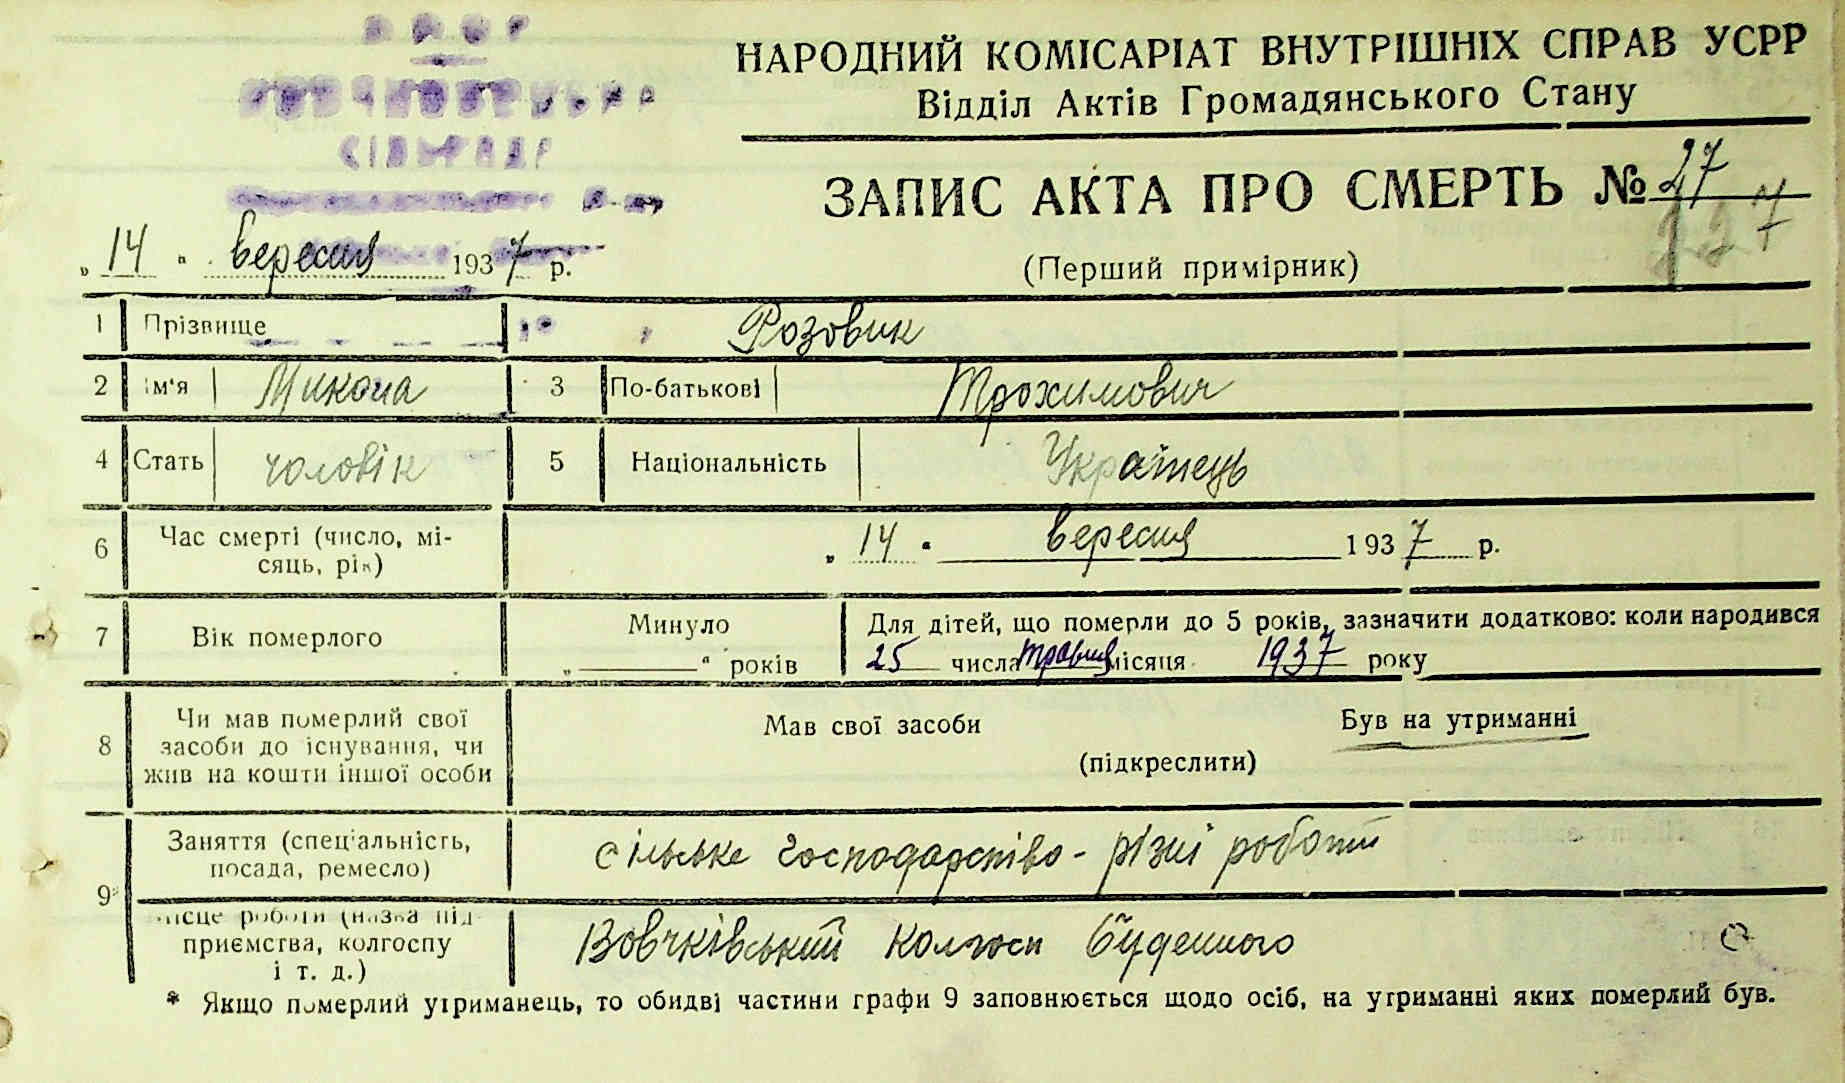 УСРР
СІЛЬРАДА
НАРОДНИЙ КОМІСАРІАТ ВНУТРІШНІХ СПРАВ УСРР
Відділ Актів Громадянського Стану
ЗАПИС АКТА ПРО СМЕРТЬ № 27
227
(Перший примірник)
„14“ вересня 1937 р.
1 Прізвище Розовик
2 Ім'я Микола 3 По-батькові Трохимович
4 Стать чоловік 5 Національність Українець
6 Час смерті (число, мі-
сяць, рік) „14“ вересня 1937 р.
7 Вік померлого Минуло
„ “ років
Для дітей, що померли до 5 років, зазначити додатково: коли народився
25 числа травня місяця 1937 року
8 Чи мав померлий свої
засоби до існування, чи
жив на кошти іншої особи
Мав свої засоби Був на утриманні
(підкреслити)
9* Заняття (спеціальність,
посада, ремесло) сільське господарство - різні роботи
Місце роботи (назва під-
приємства, колгоспу
і т. д.) Вовчківський колгосп Буденного
* Якщо померлий утриманець, то обидві частини графи 9 заповнюється щодо осіб, на утриманні яких померлий був.